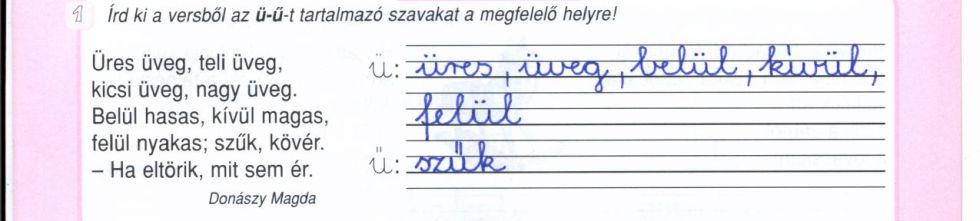 1 Írd ki a versből az ü-ű-t tartalmazó szavakat a megfelelő helyre!
Üres üveg, teli üveg,
kicsi üveg, nagy üveg.
Belül hasas, kívül magas,
felül nyakas; szűk, kövér.
– Ha eltörik, mit sem ér.
Donászy Magda
Ü: üres, üveg, belül, kívül,
felül
Ű: szűk